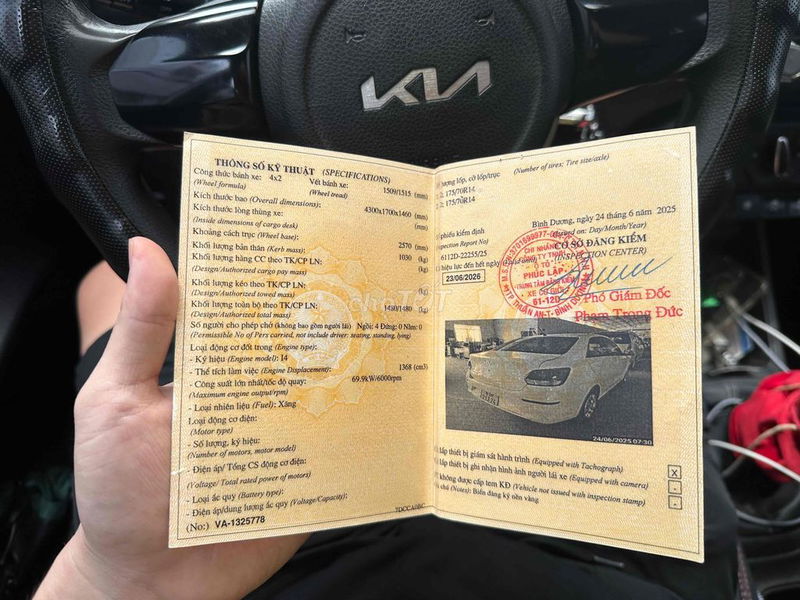 KIA
THÔNG SỐ KỸ THUẬT (SPECIFICATIONS)
Công thức bánh xe: 4x2 Vết bánh xe: 1509/1515 (mm)
(Wheel formula) (Wheel tread)
Kích thước bao (Overall dimensions): 4300x1700x1460 (mm)
Kích thước lòng thùng xe: (mm)
(Inside dimensions of cargo desk)
Khoảng cách trục (Wheel base): 2570 (mm)
Khối lượng bản thân (Kerb mass): 1030 (kg)
Khối lượng hàng CC theo TK/CP LN: (kg)
(Design/Authorized cargo pay mass)
Khối lượng kéo theo TK/CP LN: (kg)
(Design/Authorized towed mass)
Khối lượng toàn bộ theo TK/CP LN: 1480/1480 (kg)
(Design/Authorized total mass)
Số người cho phép chở (không bao gồm người lái) Ngồi: 4 Đứng: 0 Nằm: 0
(Permissible No of Pers carried, not include driver: seating, standing, lying)
Loại động cơ đốt trong (Engine type):
- Ký hiệu (Engine model): I4
- Thể tích làm việc (Engine Displacement): 1368 (cm3)
- Công suất lớn nhất/tốc độ quay: 69.9kW/6000rpm
(Maximum engine output/rpm)
- Loại nhiên liệu (Fuel): Xăng
Loại động cơ điện:
(Motor type)
- Số lượng, ký hiệu:
(Number of motors, motor model)
- Điện áp/ Tổng CS động cơ điện:
(Voltage/ Total rated power of motors)
- Loại ắc quy (Battery type):
- Điện áp/dung lượng ắc quy (Voltage/Capacity):
(No:) VA-1325778
lượng lốp, cỡ lốp/trục (Number of tires: Tire size/axle)
: 2; 175/70R14
: 2; 175/70R14
Bình Dương, ngày 24 tháng 6 năm 2025
phiếu kiểm định (Issued on: Day/Month/Year)
spection Report No) CƠ SỞ ĐĂNG KIỂM
6112D-22255/25 (INSPECTION CENTER)
hiệu lực đến hết ngày
23/06/2026
CHI NHÁNH
PHÚC LẬP
TRUNG TÂM ĐĂNG KIỂM
XE CƠ GIỚI
61-12D
Phó Giám Đốc
Phạm Trọng Đức
24/06/2025 07:30
lắp thiết bị giám sát hành trình (Equipped with Tachograph)
lắp thiết bị ghi nhận hình ảnh người lái xe (Equipped with camera)
không được cấp tem KĐ (Vehicle not issued with inspection stamp)
chú (Notes): Biển đăng ký nền vàng
X
-
-